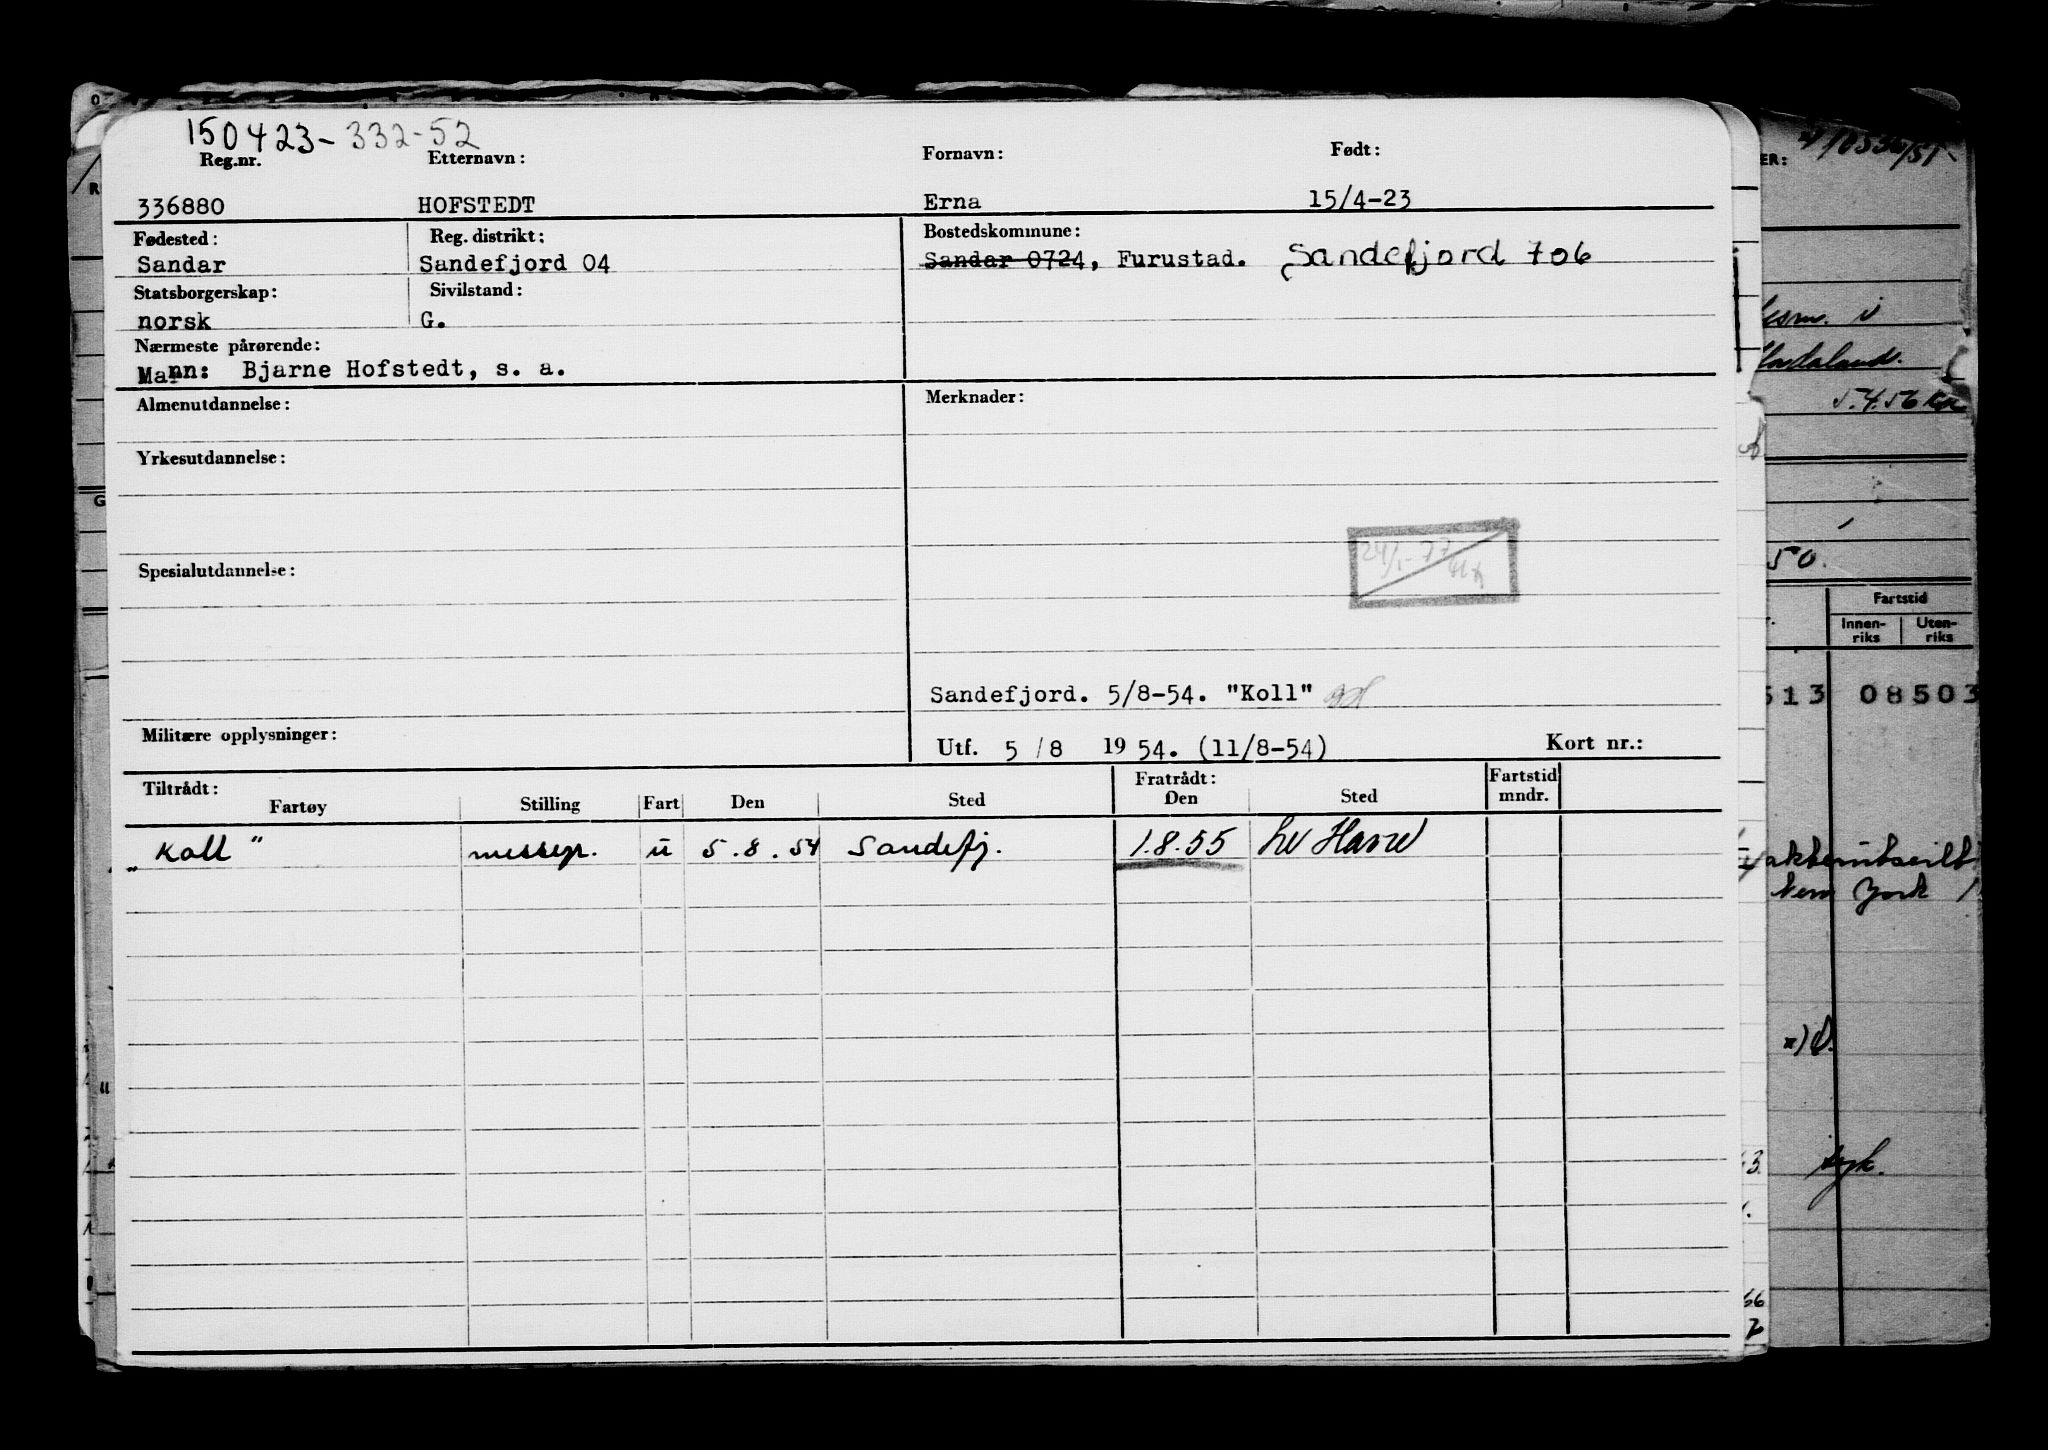 150423-332-52
Reg.nr. Etternavn: Fornavn: Født:
336880 HOFSTEDT Erna 15/4-23
Fødested: Reg. distrikt: Bostedskommune:
Sandar Sandefjord 04 Sandar 0724, Furustad. Sandefjord 706
Statsborgerskap: Sivilstand:
norsk G.
Nærmeste pårørende:
Mann: Bjarne Hofstedt, s. a.
Almenutdannelse: Merknader:
Yrkesutdannelse:
24/1-77
Spesialutdannelse:
Sandefjord. 5/8-54. "Koll"
Militære opplysninger: Utf. 5/8 1954. (11/8-54) Kort nr.:
Tiltrådt: Fratrådt: Fartstid
Fartøy Stilling Fart Den Sted Den Sted mndr.
"Koll" messep. u 5.8.54 Sandefj. 1.8.55 Le Havre
ER:
5.4.56
50.
Fartstid
Innen-riks Uten-riks
513 08503
New York
syk.